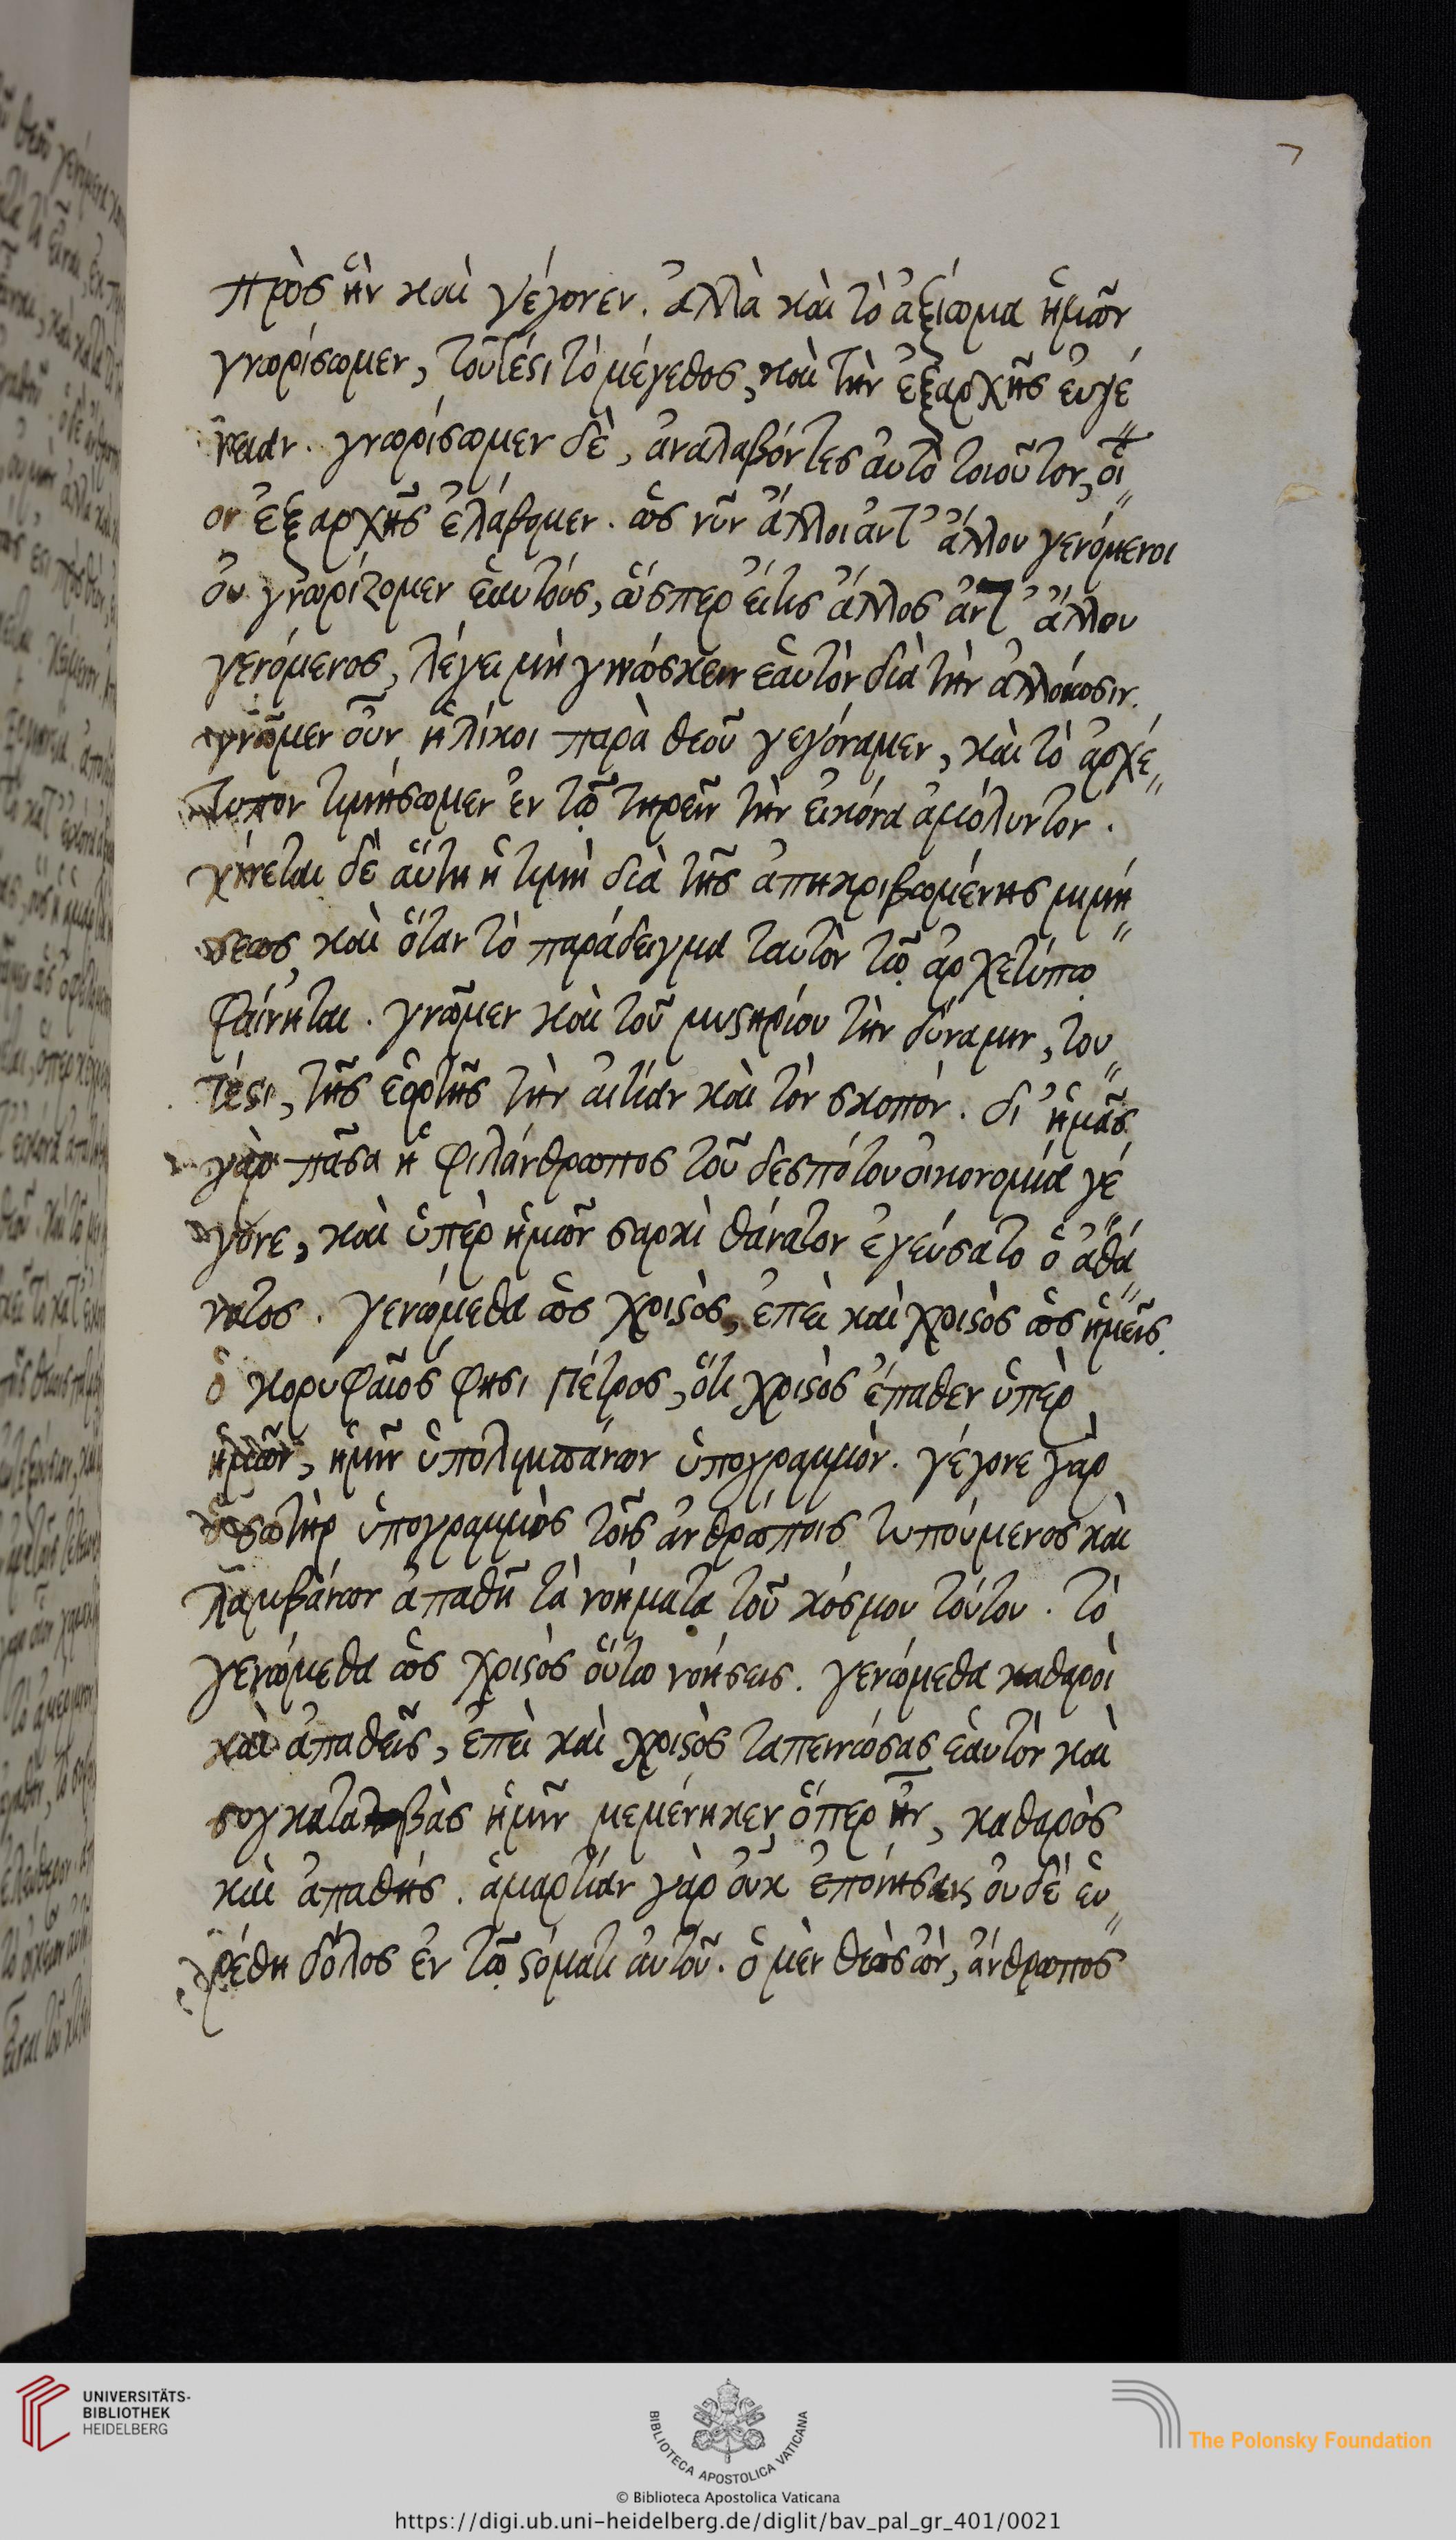 7
πρὸς ἣν καὶ γέγονεν. ἀλλὰ καὶ τὸ ἀξίωμα ἡμῶν
γνωρίσωμεν, τοῦτέστι τὸ μέγεθος, καὶ τὴν ἐξαρχῆς ευγέ
νειαν. γνωρίσωμεν δὲ, ἀναλαβόντες ἀυτὸ τοιοῦτον, οἷ
ον ἐξαρχῆς ἐλάβομεν. ὡς νῦν ἄλλοι ἀντ' ἄλλου γενόμενοι
ὀυ γνωρίζομεν ἑαυτούς, ὥσπερ εἴτις ἄλλος ἀντ' ἄλλου
γενόμενος, λέγει μὴ γινώσκειν ἑαυτὸν διὰ τὴν ἀλλοίωσιν.
γνῶμεν οὖν ἡλίκοι παρὰ θεοῦ γεγόναμεν, καὶ τὸ ἀρχέ
τυπον τιμήσωμεν ἐν τῷ τηρεῖν τὴν εἰκόνα ἀμόλυντον.
γίνεται δὲ ἅυτη ἡ τιμὴ διὰ τῆς ἀπηκριβωμένης μιμή
σεως, καὶ ὅταν τὸ παράδειγμα ταυτὸν τῷ ἀρχετύπῳ
φαίνηται. γνῶμεν καὶ τοῦ μυστηρίου τὴν δύναμιν, του
τέστι, τῆς ἑορτῆς τὴν αἰτίαν καὶ τὸν σκοπόν. δι' ἡμᾶς
γὰρ πᾶσα ἡ φιλάνθρωπος τοῦ δεσπότου ὀικονομία γέ
γονε, καὶ ὑπὲρ ἡμῶν σαρκὶ θάνατον ἐγεύσατο ὁ ἀθά
νατος. γενώμεθα ὡς χριστὸς, ἐπεὶ καὶ χριστὸς ὡς ἡμεῖς.
ὁ κορυφαῖος φησι Πέτρος, ὅτι χριστὸς ἔπαθεν ὑπὲρ
ἡμῶν, ἡμῖν ὑπολιμπάνων ὑπογραμμὸν. γέγονε γὰρ
ὁ σωτὴρ ὑπογραμμὸς τοῖς ἀνθρώποις τυπούμενος καὶ
λαμβάνων ἀπαθῆ τὰ νοήματα τοῦ κόσμου τούτου. τὸ
γενώμεθα ὡς χριστὸς ὅυτω νοήσεις. γενώμεθα καθαροὶ
καὶ ἀπαθεῖς, ἐπεὶ καὶ χριστὸς ταπεινώσας ἑαυτὸν καὶ
συγκαταβὰς ἡμῖν μεμένηκεν ὅπερ ἦν, καθαρὸς
καὶ ἀπαθής. ἁμαρτίαν γὰρ ὀυκ ἐποίησεν ὀυδὲ ἑυ
ρέθη δόλος ἐν τῷ στόματι ἀυτοῦ. ὁ μὲν θεὸς ὢν, ἄνθρωπος
UNIVERSITÄTS-
BIBLIOTHEK
HEIDELBERG
BIBLIOTECA APOSTOLICA VATICANA
The Polonsky Foundation
© Biblioteca Apostolica Vaticana
https://digi.ub.uni-heidelberg.de/diglit/bav_pal_gr_401/0021